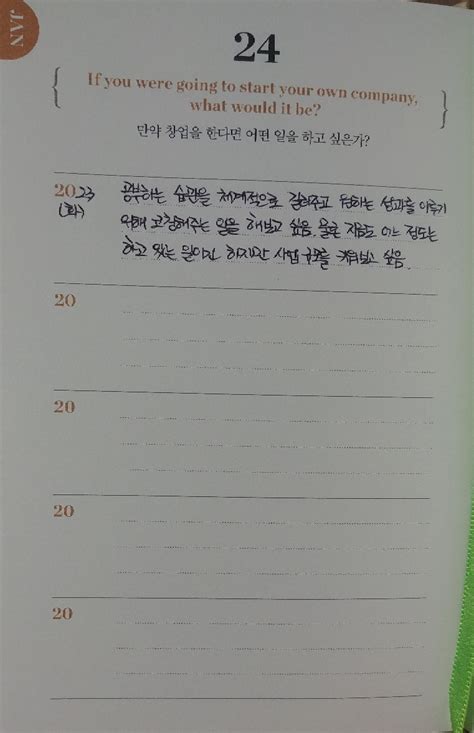 JAN
24
If you were going to start your own company,
what would it be?
만약 창업을 한다면 어떤 일을 하고 싶은가?
2023 공부하는 습관을 체계적으로 길러주고 원하는 성과를 이루기
(화) 위해 코칭해주는 일을 해보고 싶음. 물론 지금도 어느 정도는
하고 있는 일이긴 하지만 사업 규모를 키워보고 싶음.
20
20
20
20